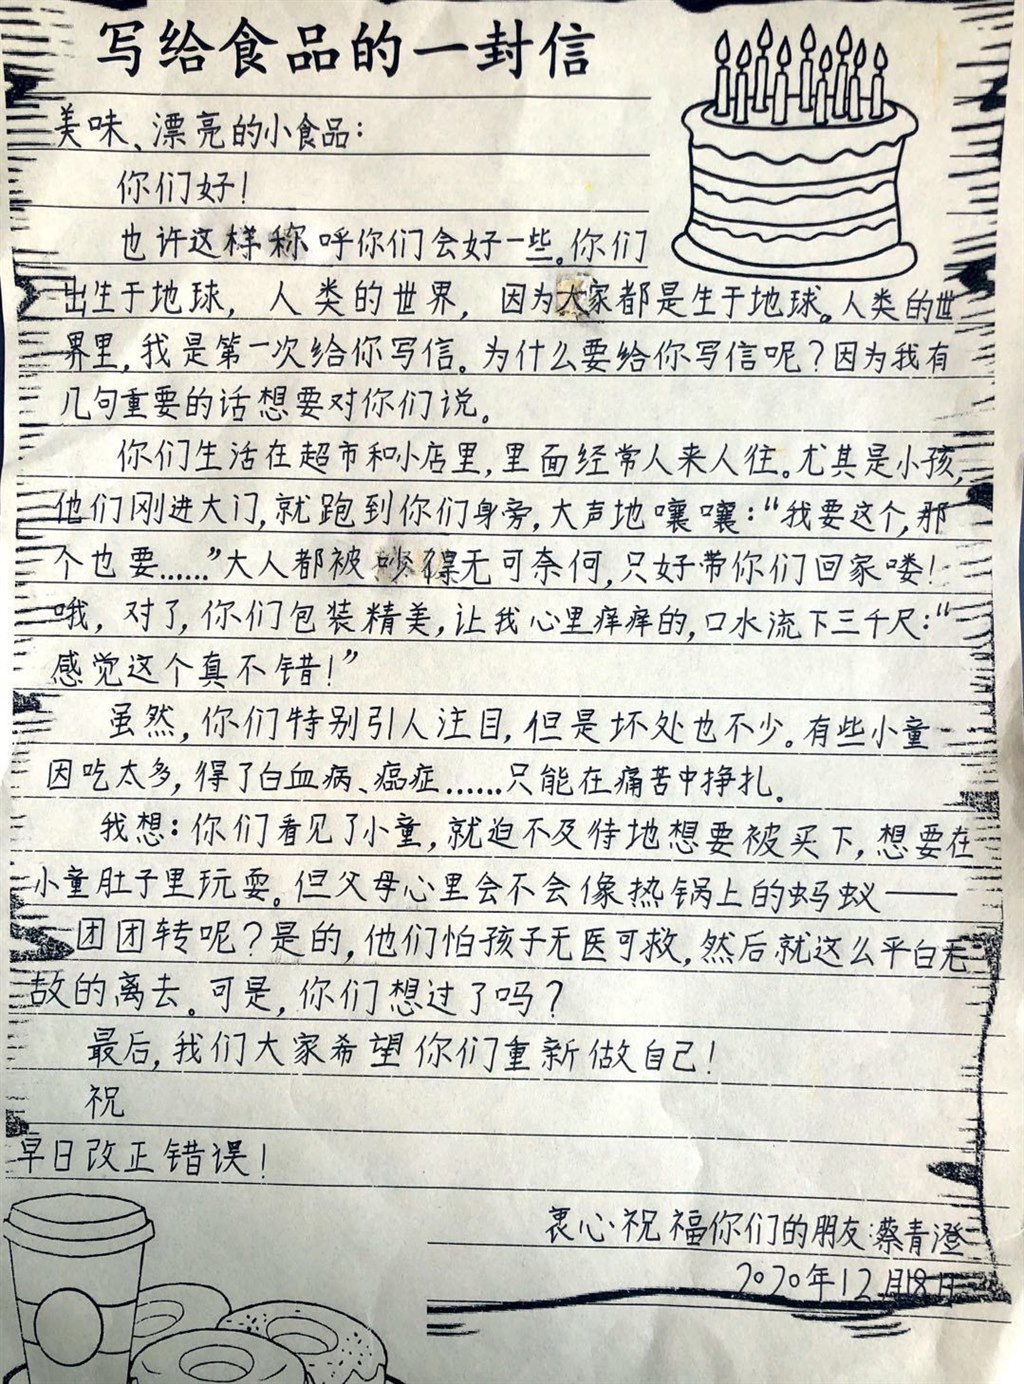 写给食品的一封信
美味、漂亮的小食品：
你们好！
也许这样称呼你们会好一些。你们
出生于地球，人类的世界，因为大家都是生于地球。人类的世
界里，我是第一次给你写信。为什么要给你写信呢？因为我有
几句重要的话想要对你们说。
你们生活在超市和小店里，里面经常人来人往。尤其是小孩，
他们刚进大门，就跑到你们身旁，大声地嚷嚷：“我要这个，那
个也要……”大人都被吵得无可奈何，只好带你们回家喽！
哦，对了，你们包装精美，让我心里痒痒的，口水流下三千尺：“
感觉这个真不错！”
虽然，你们特别引人注目，但是坏处也不少。有些小童
因吃太多，得了白血病、癌症……只能在痛苦中挣扎。
我想：你们看见了小童，就迫不及待地想要被买下，想要在
小童肚子里玩耍。但父母心里会不会像热锅上的蚂蚁——
团团转呢？是的，他们怕孩子无医可救，然后就这么平白无
故的离去。可是，你们想过了吗？
最后，我们大家希望你们重新做自己！
祝
早日改正错误！
衷心祝福你们的朋友：蔡青澄
2020年12月18日